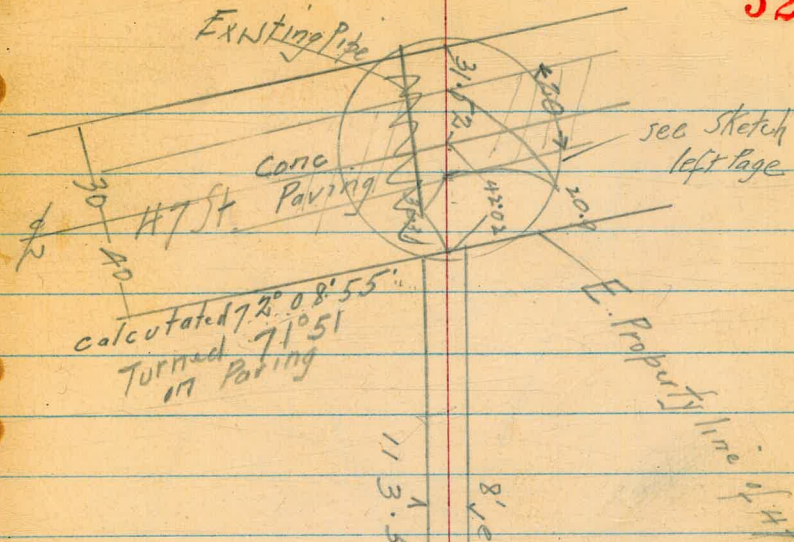 52
Existing Pipe
31.52
20
see Sketch
left Page
Conc
Paving
30
47 St.
40
4202
20.9
calculated 72° 08' 55"
Turned 71° 51
in Paving
E. Property line of 47
113.5
8'